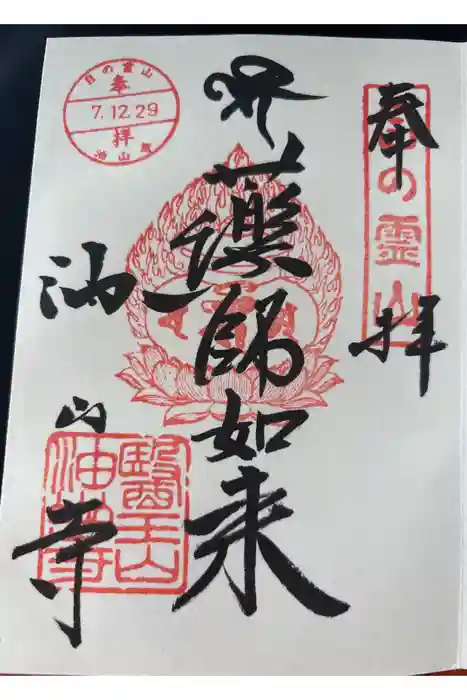 奉拝
目の霊山
藥師如来
油山寺
醫王山
油山寺
目の霊山
奉
7.12.29
拝
油山寺